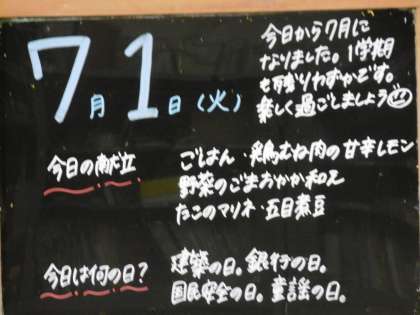 7月1日(火)
今日から7月に
なりました。1学期
も残りわずかです。
楽しく過ごしましょう
今日の献立
ごはん・鶏むね肉の甘辛レモン
野菜のごまおかか和え
たこのマリネ・五目煮豆
今日は何の日?
建築の日。銀行の日。
国民安全の日。童謡の日。